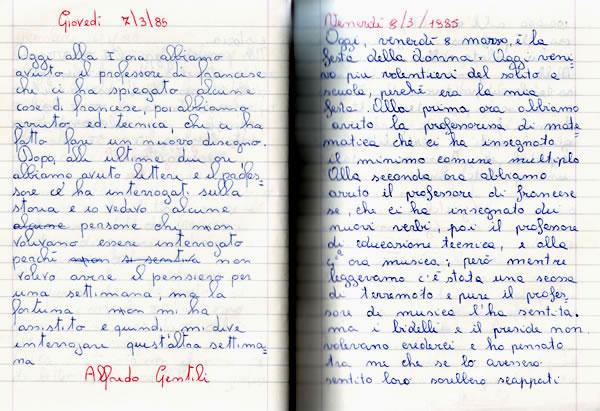 Giovedì 7/3/85
Oggi alla I ora abbiamo
avuto il professore di francese
che ci ha spiegato alcune
cose di francese, poi abbiamo
avuto ed. tecnica, che ci ha
fatto fare un nuovo disegno.
Dopo, alle ultime due ore
abbiamo avuto lettere e il profes=
sore ce' ha interrogati sulla
storia e io vedevo alcune
alcune persone che non
volevano essere interrogato
perché non si sentiva non
volevo avere il pensiero per
una settimana, ma la
fortuna non mi ha
assistito e quindi mi deve
interrogare quest'altra settima=
na
Alfredo Gentili
Venerdì 8/3/1985
Oggi, venerdì 8 marzo, è la
festa della donna. Oggi veni=
vo più volentieri del solito a
scuola, perché era la mia
festa. Alla prima ora abbiamo
avuto la professoressa di mate=
matica che ci ha insegnato
il minimo comune multiplo
Alla seconda ora abbiamo
avuto il professore di francese
se, che ci ha insegnato dei
nuovi verbi, poi il professore
di educazione tecnica, e alla
4ª ora musica; però mentre
leggevamo c'è stata una scossa
di terremoto e pure il profes=
sore di musica l'ha sentita.
ma i bidelli e il preside non
volevano crederci e ho pensato
tra me che se lo avessero
sentito loro sarebbero scappati